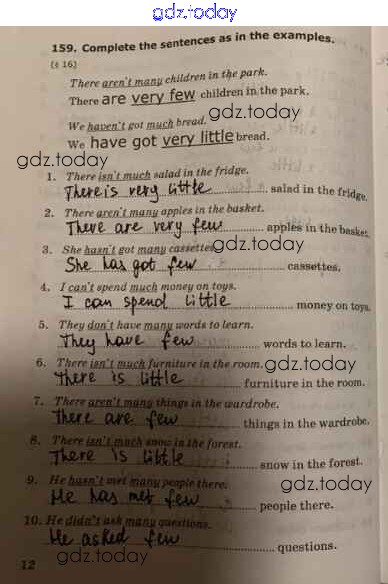 gdz.today
159. Complete the sentences as in the examples.
(§ 16)
There aren't many children in the park.
There are very few children in the park.
gdz.today
We haven't got much bread.
We have got very little bread.
gdz.today
1. There isn't much salad in the fridge.
There is very little salad in the fridge.
2. There aren't many apples in the basket.
There are very few apples in the basket.
3. She hasn't got many cassettes.
gdz.today
She has got few cassettes.
4. I can't spend much money on toys.
I can spend little money on toys.
5. They don't have many words to learn.
They have few words to learn.
6. There isn't much furniture in the room.
gdz.today
There is little furniture in the room.
7. There aren't many things in the wardrobe.
There are few things in the wardrobe.
8. There isn't much snow in the forest.
There is little snow in the forest.
9. He hasn't met many people there.
gdz.today
He has met few people there.
10. He didn't ask many questions.
He asked few questions.
gdz.today
12